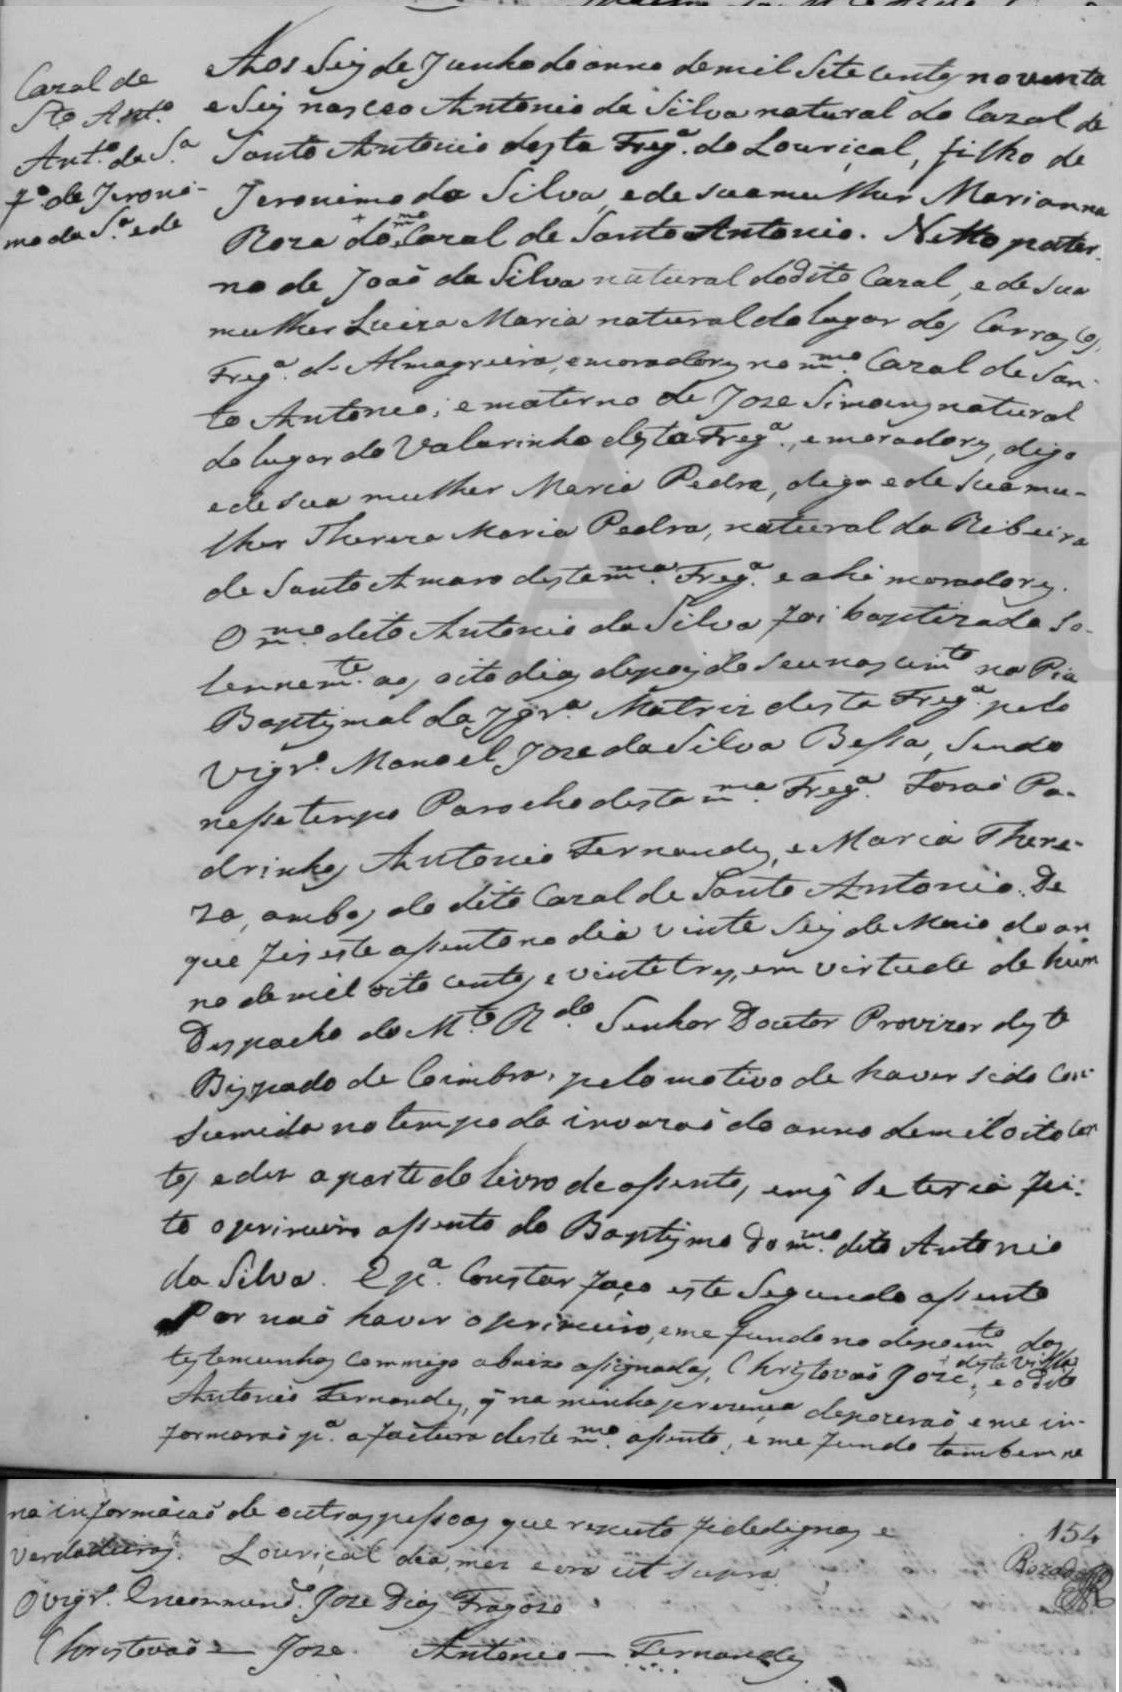 Cazal de
Sto. Anto.
Anto. da Sa.
fo. de Jeroni-
mo da Sa. e de
Aos Seis de Junho do anno de mil Sete centos noventa
e Seis nasceo Antonio da Silva natural do Cazal de
Santo Antonio desta Frega. do Louriçal, filho de
Jeronimo da Silva, e de sua mulher Marianna
Roza do mmo. Cazal de Santo Antonio. Netto pater-
no de João da Silva natural do dito Cazal, e de sua
mulher Luiza Maria natural do lugar dos
Frega. d'Almagreira, e moradores no mmo. Cazal de San-
to Antonio; e materno de Joze Simoens natural
do lugar do Valarinho desta Frega., e moradores, digo
e de sua mulher Maria Pedra, digo e de sua mu-
lher Thereza Maria Pedra, natural da Ribeira
de Santo Amaro desta mma. Frega. e ahi moradores.
O mmo. dito Antonio da Silva foi baptizado So-
lennemte. aos oito dias depois do seu nascimto. na Pia
Baptismal da Igra. Matriz desta Frega. pelo
Vigro. Manoel Joze da Silva Bessa, Sendo
nesse tempo Parocho desta mma. Frega. Forão Pa-
drinhos Antonio Fernandes, e Maria There-
za, ambos do dito Cazal de Santo Antonio. De
que fis este assento no dia vinte Seis de Maio do an-
no de mil oito centos e vinte tres, em virtude de hum
Despacho do Mto. Rdo. Senhor Doutor Provizor deste
Bispado de Coimbra, pelo motivo de haver sido Con-
sumida no tempo da invazaõ do anno de mil oito cen-
tos e des a parte do livro de assentos, em q̃ Se teria fei-
to o primeiro assento do Baptismo do mmo. dito Antonio
da Silva. E pa. Constar faço este Segundo assento
Por naõ haver o primeiro, e me fundo no depoimto. das
testemunhas commigo abaixo assignadas, Christovaõ Joze, desta Villa, e o dito
Antonio Fernandes, q̃ na minha prezença depozeraõ e me in-
formaraõ pa. a factura deste mmo. assento, e me fundo tambem na
na informaçaõ de outras pessoas que reputo fidedignas e
verdadeiras. Louriçal dia, mes e era ut supra.
O Vigro. Encommendo. Joze Dias Fragozo
Christovaõ = Joze. Antonio — Fernandes
154